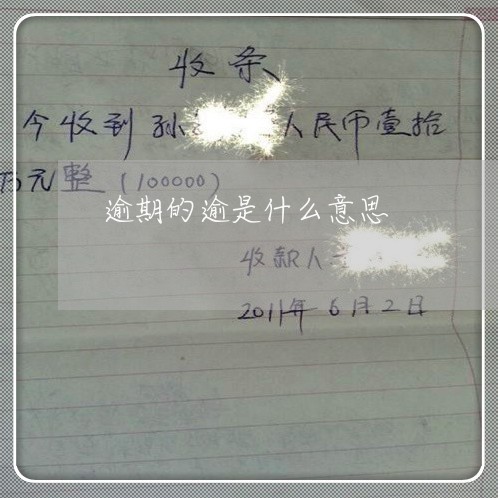 收条
今收到孙 人民币壹拾
万元整(100000)
逾期的逾是什么意思
收款人
2011年6月2日